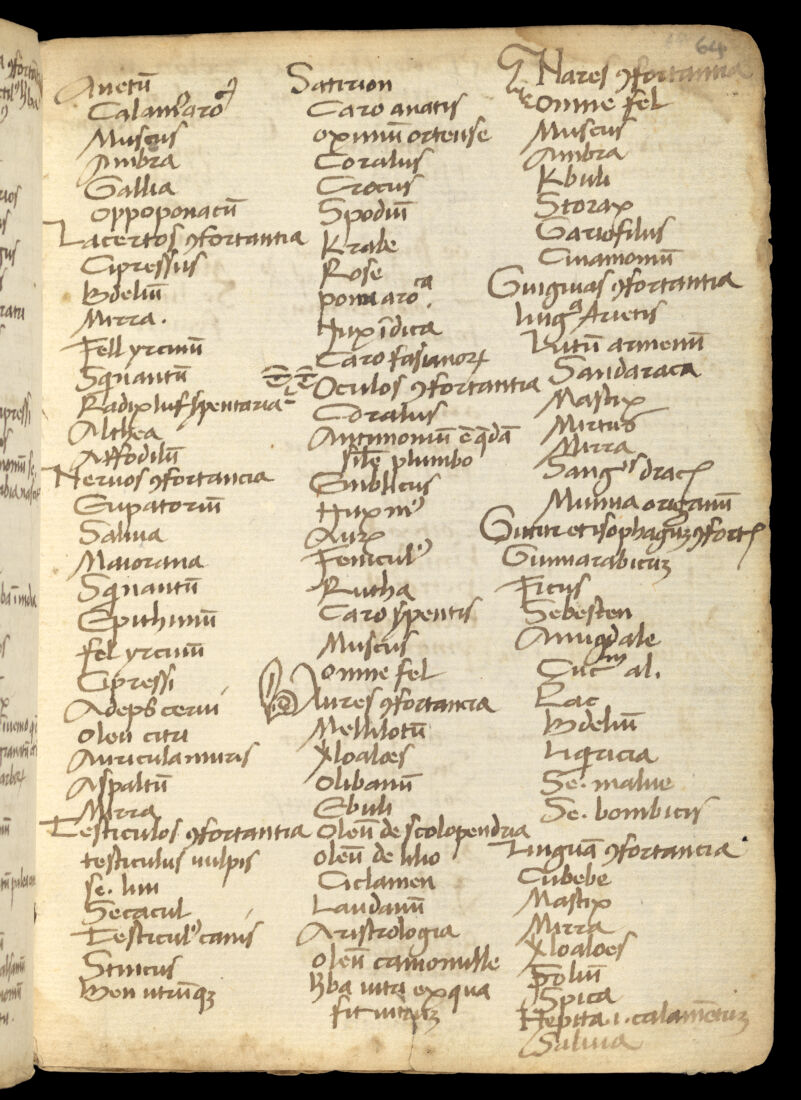 64
Anetū
Calam9 aro
Muscus
Ambra
Gallia
oppoponacū
Lacertos ꝯfortantia
Cipressus
Bdeliū
Mirra.
Fell yrcinū
Squantū
Radix luf spentaria
Althea
Affodilū
Nervos ꝯfortancia
Eupatoriū
Salvia
Maiorana
Squinantū
Epithimū
fel yrcinū
Cipressi
Adeps cervi
oleū citri
Auricula muris
Aspaltū
Mirra
Testiculos ꝯfortantia
testiculus vulpis
se. lini
Secacul
Testicul9 canis
Stincus
Ben utrūqꝫ
Satirion
Caro anatis
ozimū ortense
Coralus
Crocus
Spodiū
Krabe
Rose
poma aroᵃ.
Nux īdica
Caro fasianoꝝ
Oculos ꝯfortantia
Coralus
Antimoniū ē q̄dā
sil̄e plumbo
Emblicus
Nux m9
Aurꝫ
Fenicul9
Rutha
Caro spentis
Muscus
omne fel
Aures ꝯfortancia
Mellilotū
Xloaloes
Olibanū
Ebuli
Oleū de scolopendria
oleū de lilio
Ciclamen
Laudanū
Aristrologia
oleū camomille
Hba vitri ex qua
fit vitrꝫ
Nares ꝯfortantia
omne fel
Muscus
Ambra
Kbuli
Storax
Gariofilus
Cinamomū
Gingivas ꝯfortantia
lingᵃ Arietis
Lutū armenū
Sandaraca
Mastix
Mirtus
Mirra
Sangⁱs drac
Mumia origanū
Gutur et isophagꝫ ꝯfort
Gummi arabicꝫ
Ficus
Sebesten
Amigdale
Cucᵐ al.
Lac
Bdeliū
Liqricia
Se. malve
Se. bombicis
Linguā ꝯfortancia
Cubebe
Mastix
Mirra
Xloaloes
Poliū
Spica
Nepita .i. calamentꝫ
Salvia